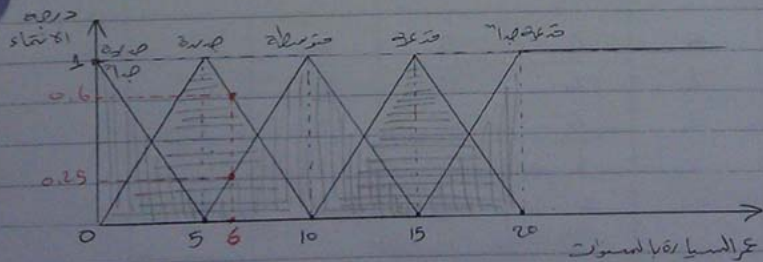 درجة
الانتماء
جديدة جداً
جديدة
متوسطة
قديمة
قديمة جداً
1
0.6
0.25
0 5 6 10 15 20
عمر السيارة بالسنوات